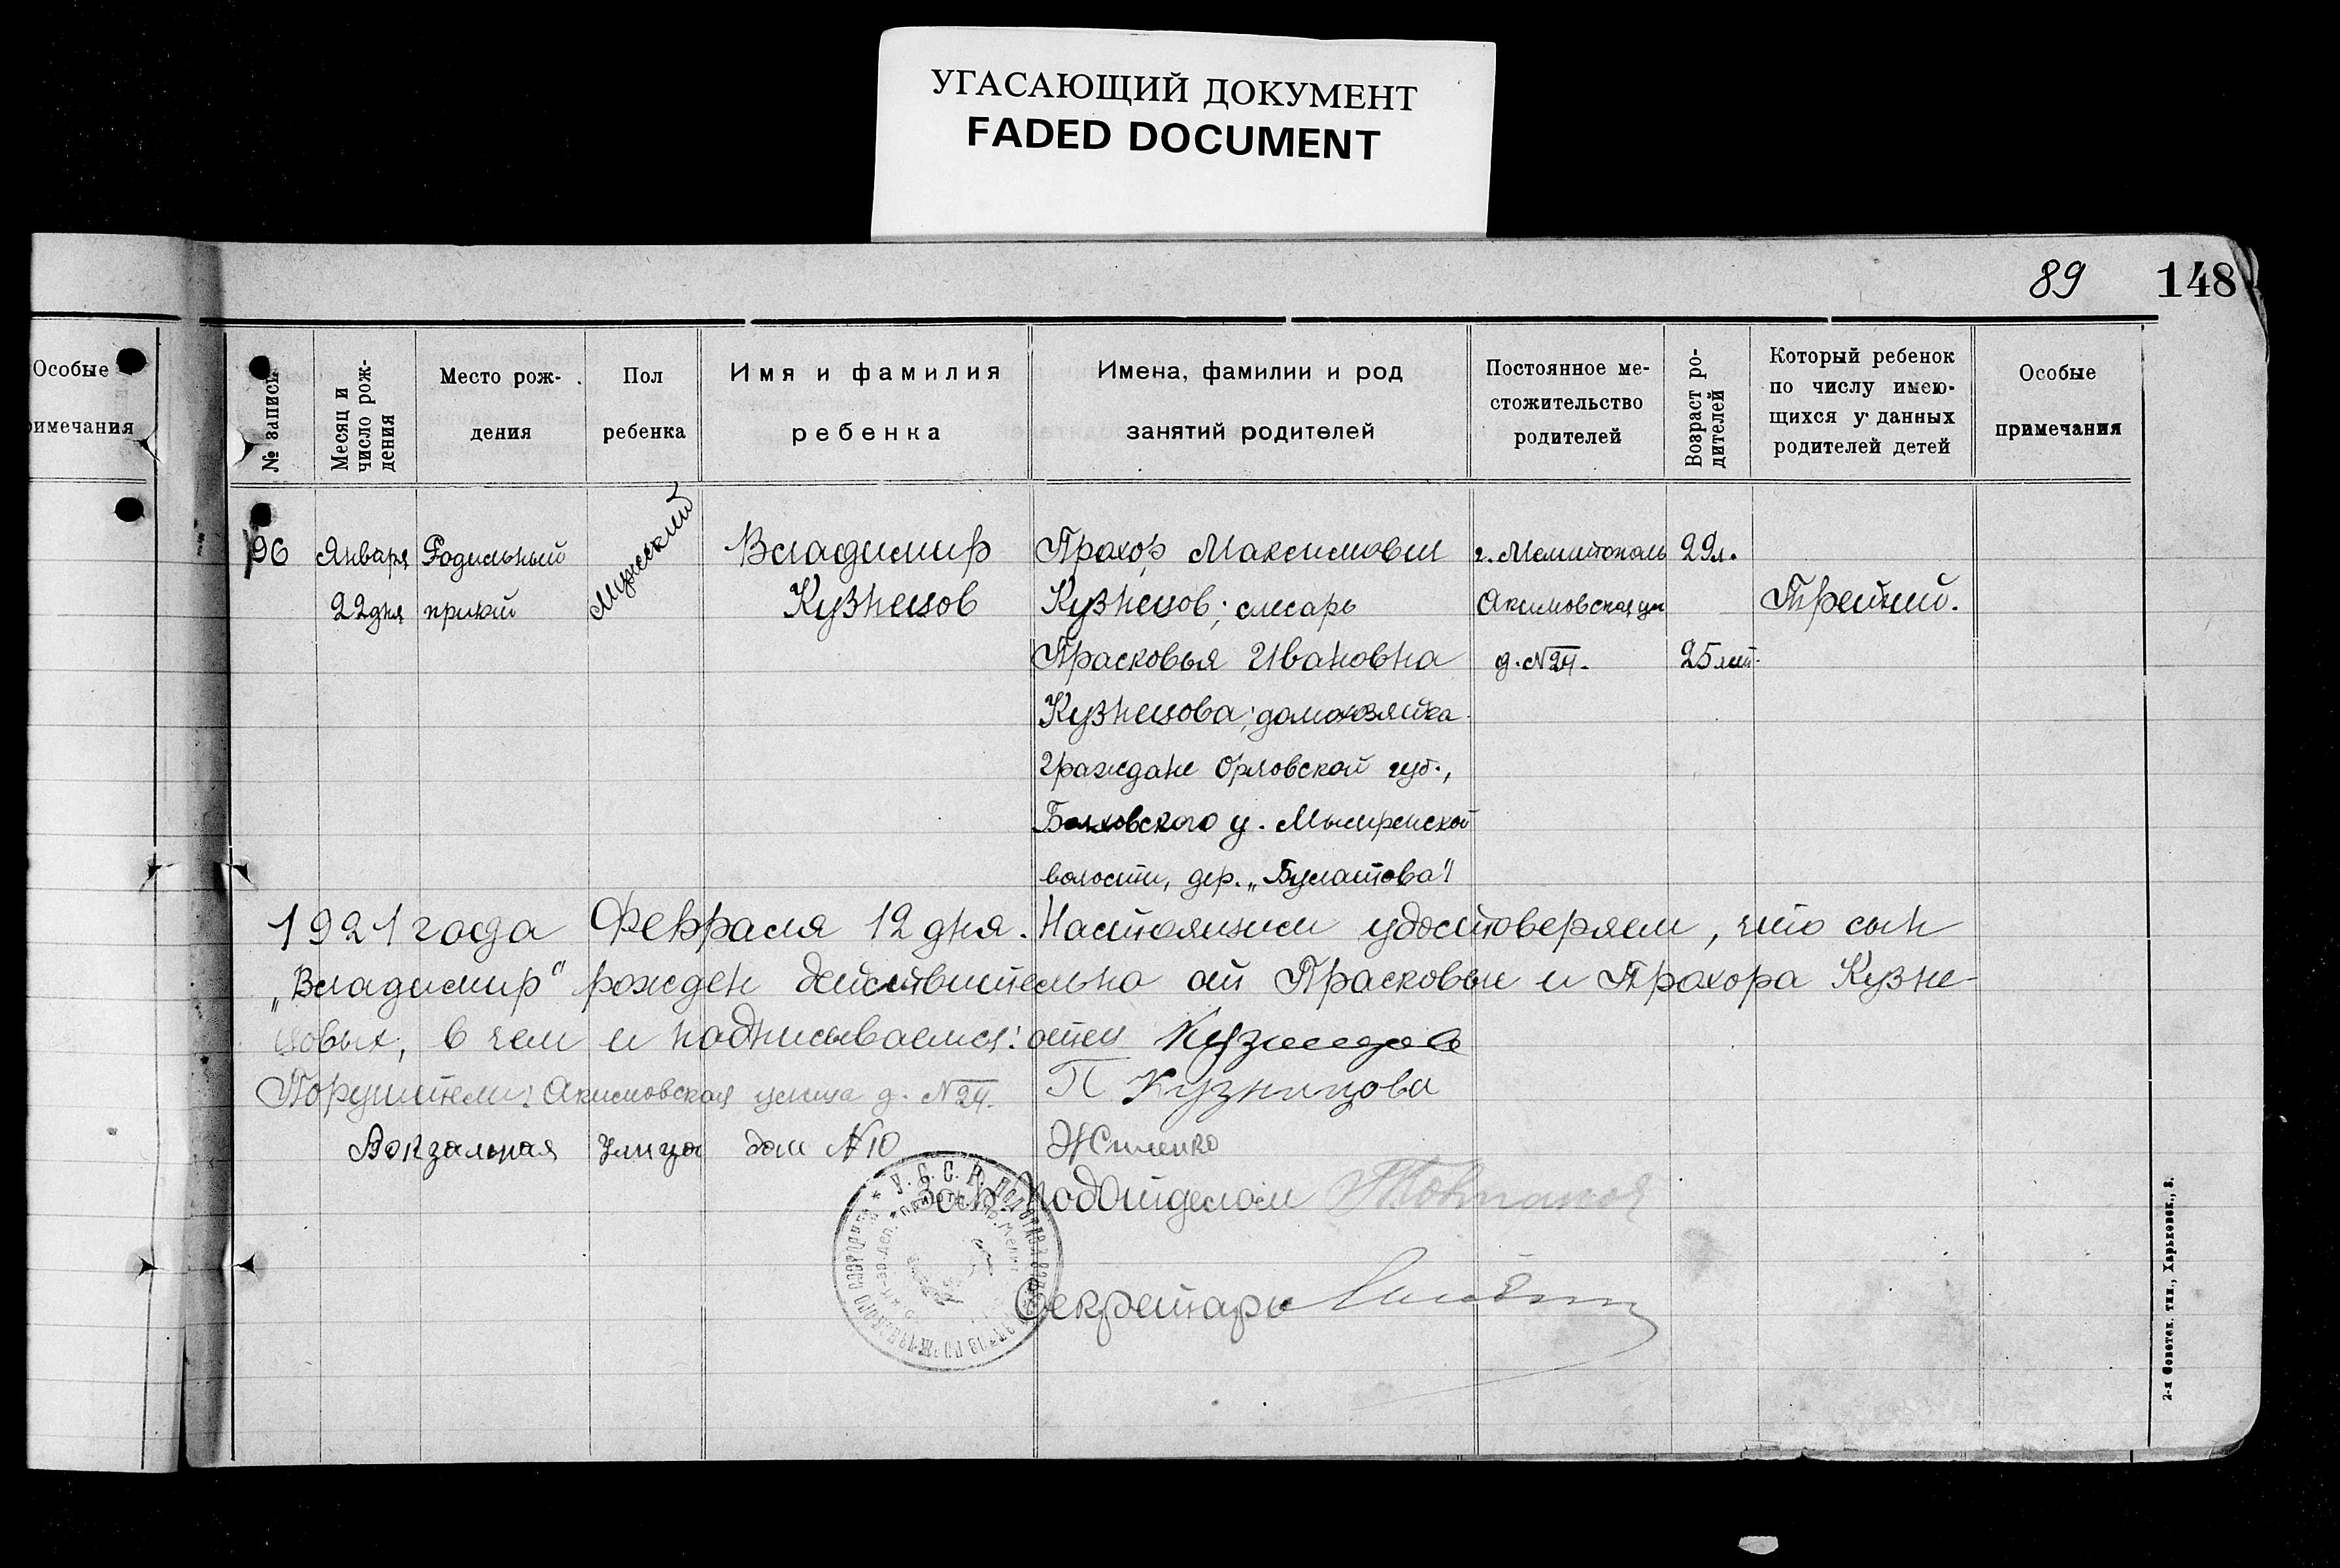 УГАСАЮЩИЙ ДОКУМЕНТ
FADED DOCUMENT
89 148
Особые
римечания
№ запись
Месяц и число рож-дения
Место рож-дения
Пол ребенка
Имя и фамилия ребенка
Имена, фамилии и род занятий родителей
Постоянное ме-стожительство родителей
Возраст ро-дителей
Который ребенок по числу имею-щихся у данных родителей детей
Особые примечания
96 Января Родильный Мужский Владимир Прохор Максимович г. Мелитополь 29л.
22 дня приют Кузнецов Кузнецов; слесарь Акимовская ул Третий.
Прасковья Ивановна д. №24. 25 лет.
Кузнецова; домохозяйка.
Граждане Орловской губ.,
Болховского у.
волости, дер. „
1921 года Февраля 12 дня. Настоящим удостоверяем, что сын
„Владимир" рожден действительно от Прасковьи и Прохора Кузне-
цовых, в чем и подписываемся: отец Кузнецов
Поручители: Акимовская улица д. №24. П Кузницова
Вокзальная улица дом №10
Зав. Подотделом
Секретарь
У.С.С.Р.
2-я Советск. тип., Харьковск., 8.